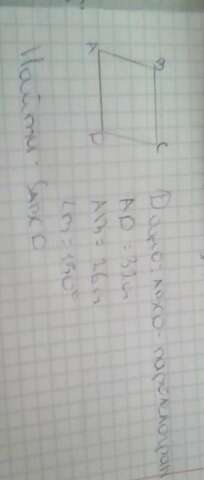 A
B
C
D
Дано: ABCD - параллелограм
AD = 32 см
AB = 26 см
∠B = 150°
Найти: SABCD